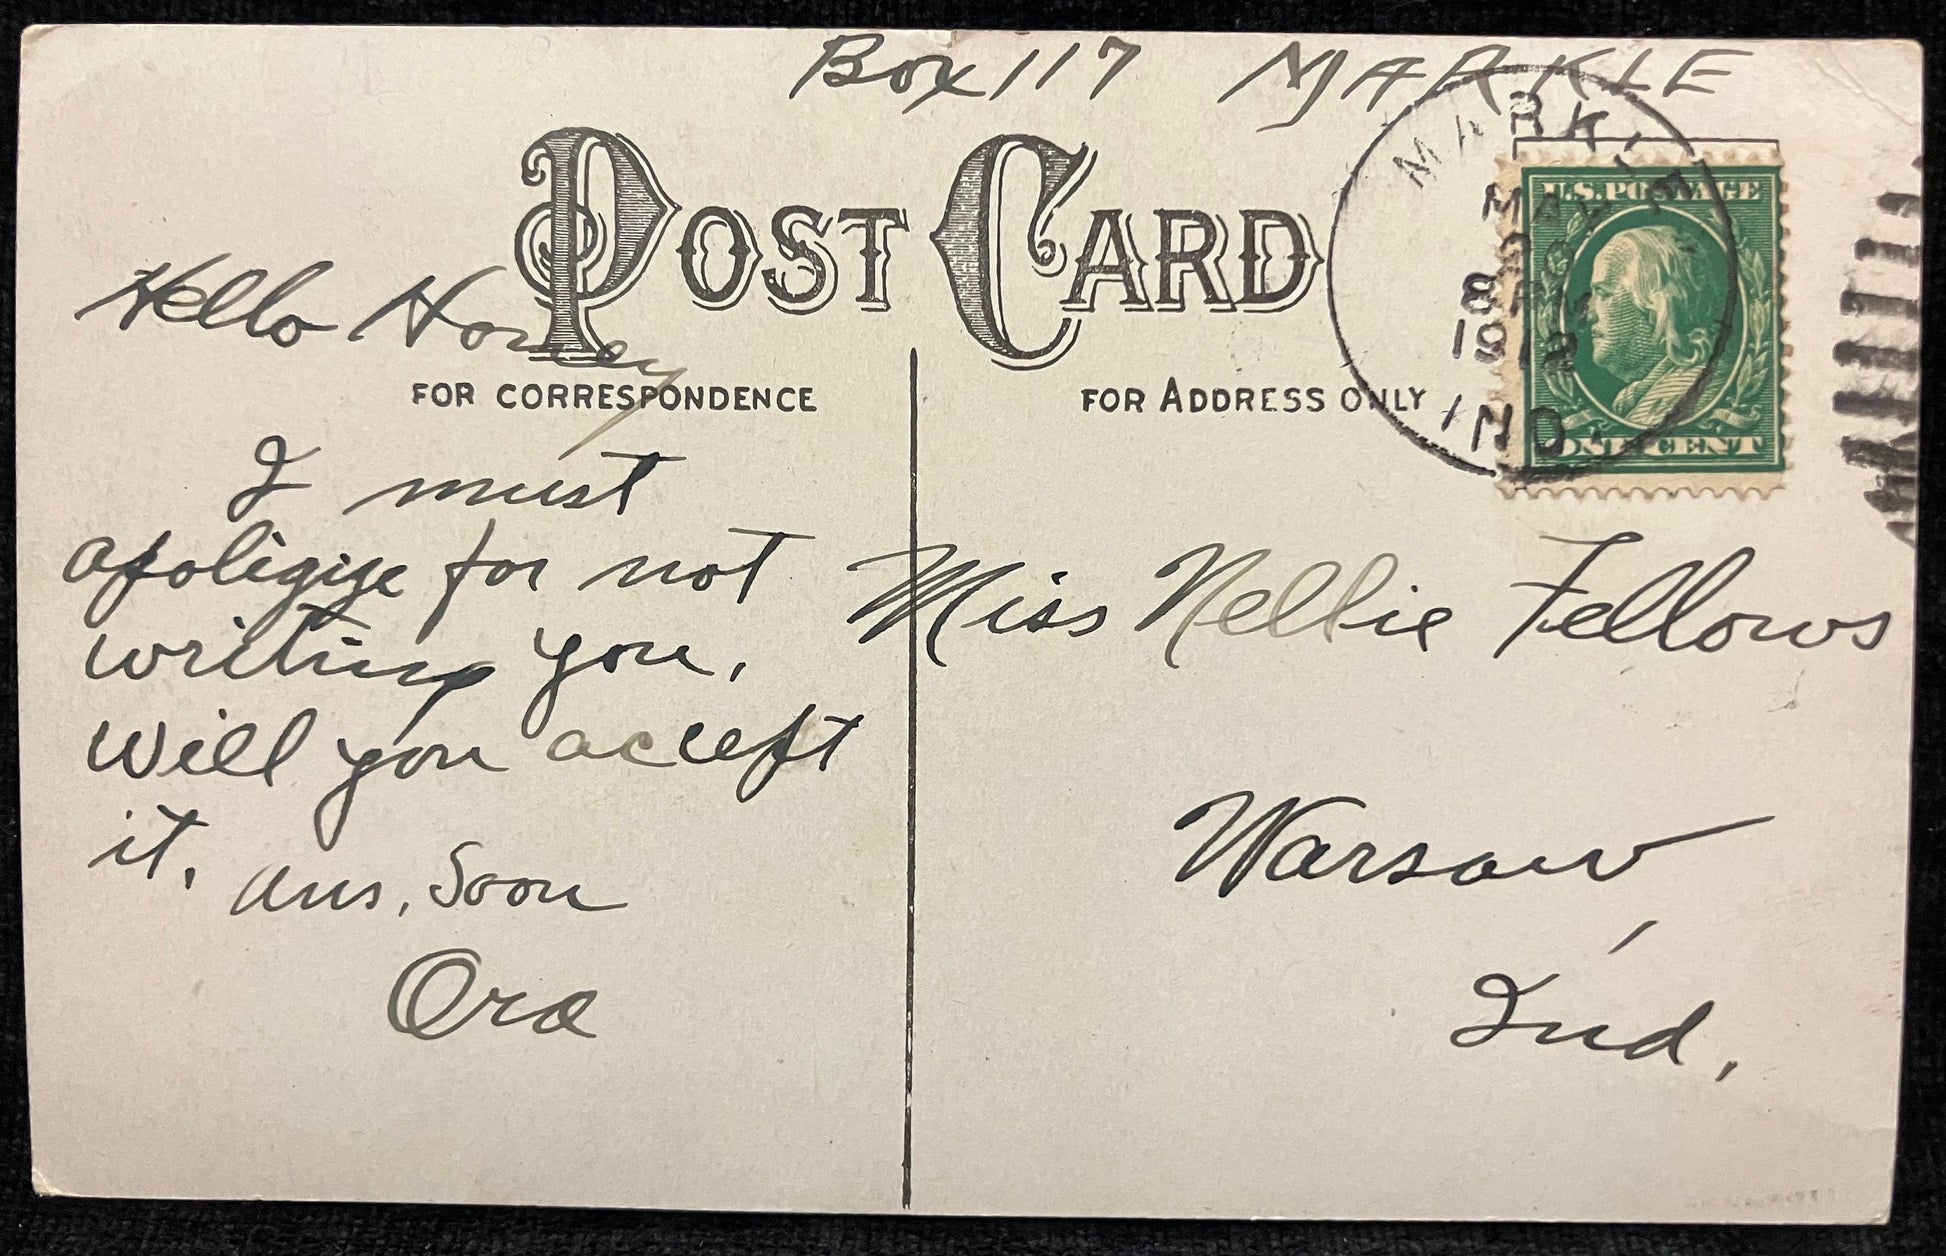 Box 117 MARKLE
POST CARD
MARKLE
MAY
8 PM
1912
IND.
U.S. POSTAGE
ONE CENT
FOR CORRESPONDENCE
FOR ADDRESS ONLY
Hello Honey
I must
apoligize for not
writing you.
Will you accept
it.
Ans. Soon
Ora
Miss Nellie Fellows
Warsaw,
Ind.